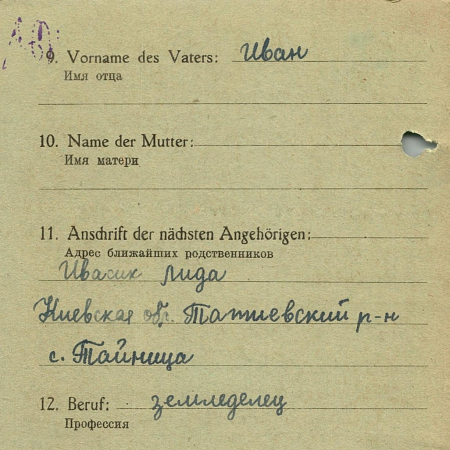 9. Vorname des Vaters: Иван
Имя отца
10. Name der Mutter:
Имя матери
11. Anschrift der nächsten Angehörigen:
Адрес ближайших родственников
Ивасик Лида
Киевская обл. Тапиевский р-н
с. Тайница
12. Beruf: земледелец
Профессия